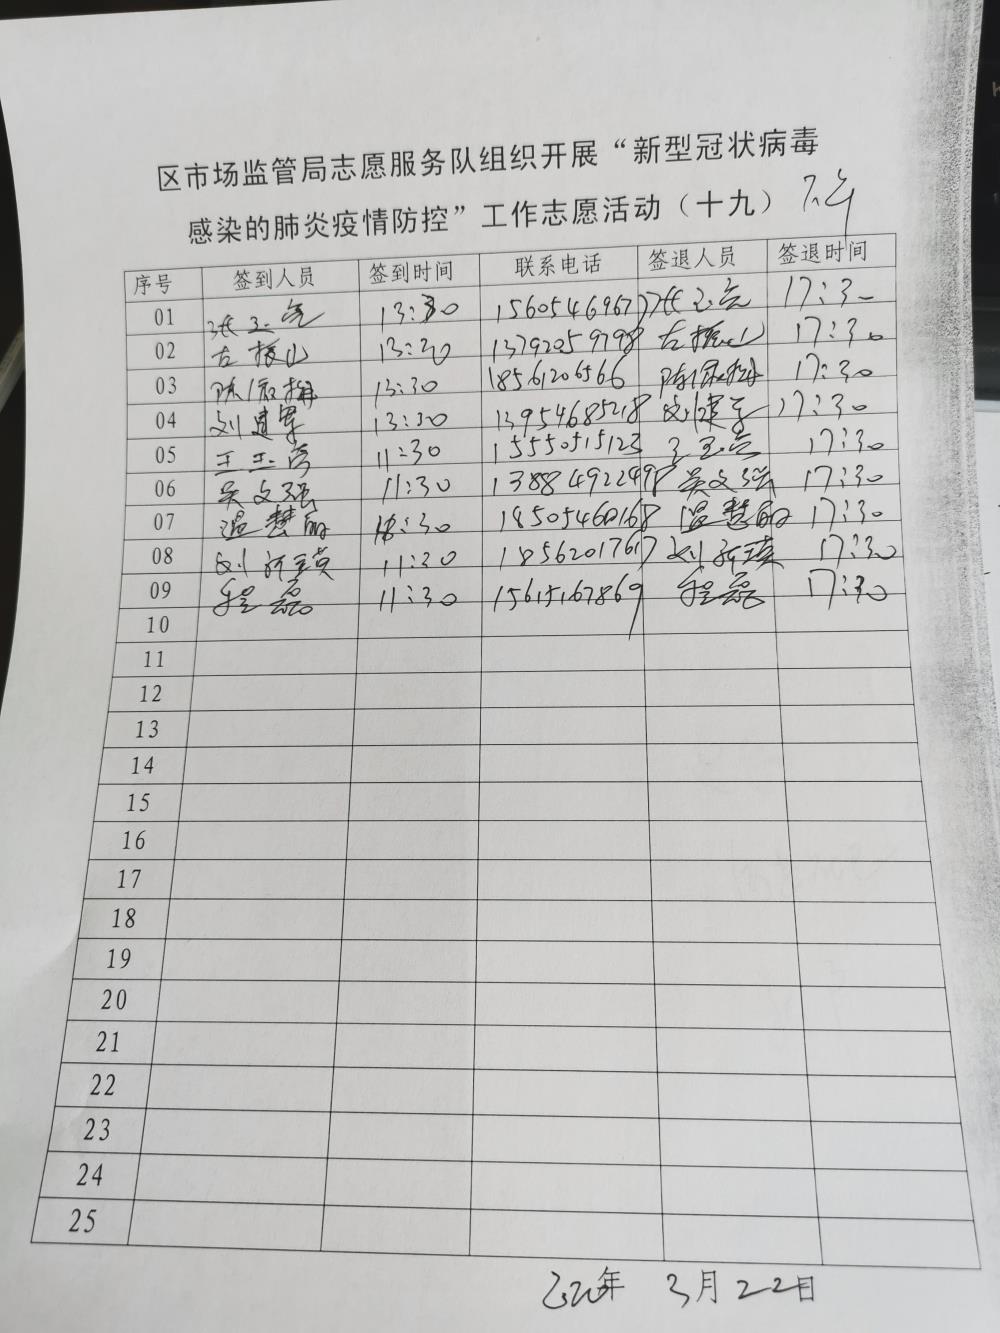 区市场监管局志愿服务队组织开展“新型冠状病毒
感染的肺炎疫情防控”工作志愿活动（十九）下午
序号 签到人员 签到时间 联系电话 签退人员 签退时间
01 13:30 17:30
02 13:30 13792059798 17:30
03 13:30 18561206566 17:30
04 刘建军 13:30 13954685218 刘建军 17:30
05 11:30 15550515123 17:30
06 吴文强 11:30 吴文强 17:30
07 温慧丽 18505460168 温慧丽 17:30
08 11:30 18562017617 17:30
09 程磊 11:30 15615167869 程磊 17:30
10
11
12
13
14
15
16
17
18
19
20
21
22
23
24
25
年 3月22日